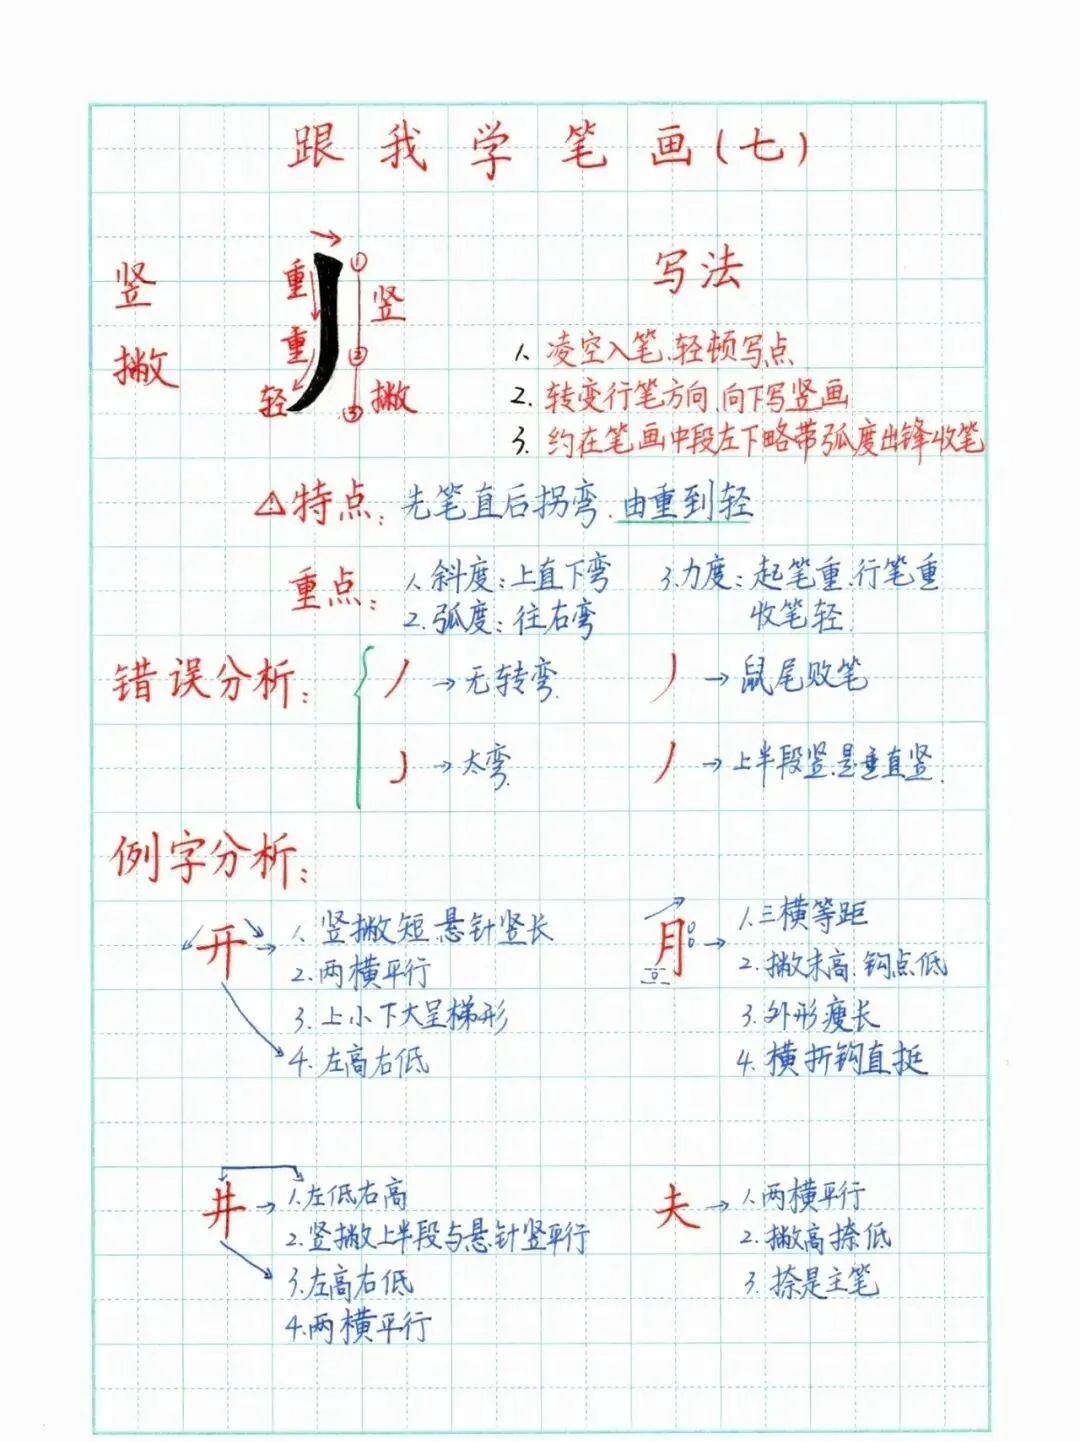 跟我学笔画(七)
竖撇
重
重
轻
①
②
③
竖
撇
写法
1. 凌空入笔、轻顿写点
2. 转变行笔方向、向下写竖画
3. 约在笔画中段左下略带弧度出锋收笔
特点: 先笔直后拐弯、由重到轻
重点:
1. 斜度: 上直下弯
2. 弧度: 往右弯
3. 力度: 起笔重、行笔重
收笔轻
错误分析:
丿→无转弯
丿→鼠尾败笔
丿→太弯
丿→上半段竖是垂直竖
例字分析:
开
1. 竖撇短、悬针竖长
2. 两横平行
3. 上小下大呈梯形
4. 左高右低
月
1. 三横等距
2. 撇末高、钩点低
3. 外形瘦长
4. 横折钩直挺
井
1. 左低右高
2. 竖撇上半段与悬针竖平行
3. 左高右低
4. 两横平行
夫
1. 两横平行
2. 撇高捺低
3. 捺是主笔